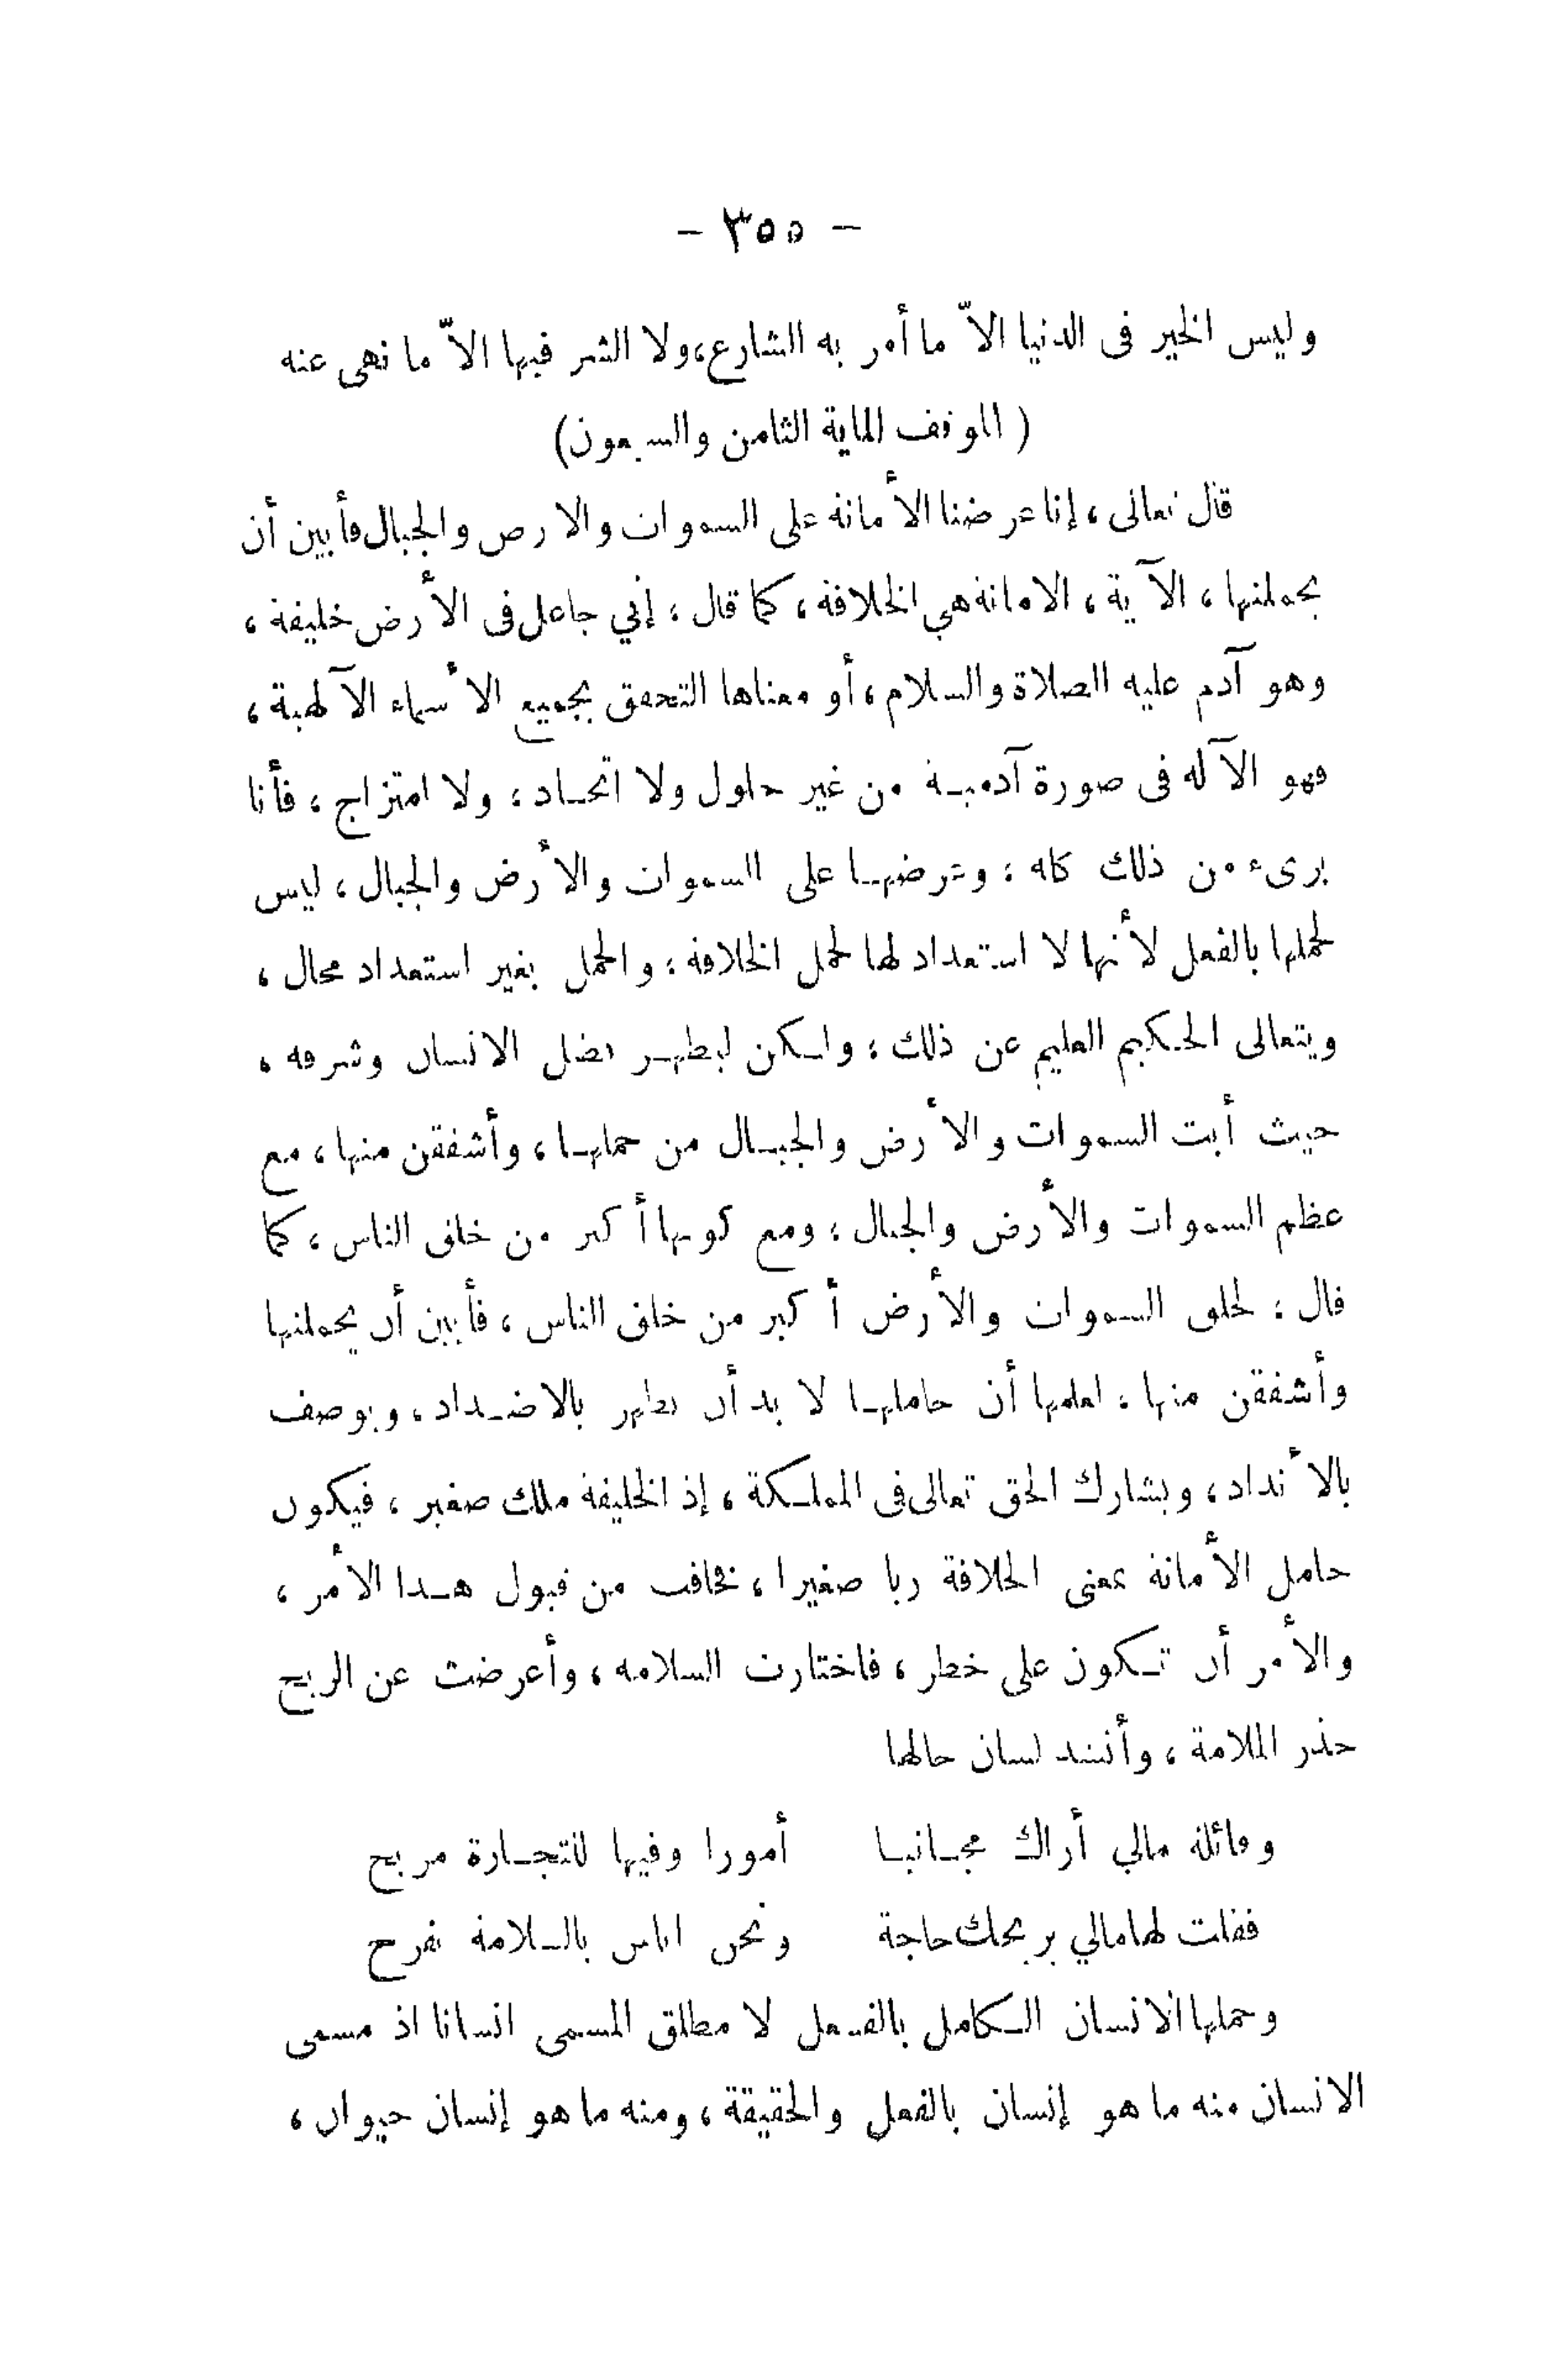 — ٣٥٥ —
وليس الخير فى الدنيا الاّ ما أمر به الشارع، ولا الشر فيها الاّ ما نهى عنه
( الموقف الماية الثامن والسبعون)
قال تعالى ، إنا عرضنا الأمانة على السموات والارض والجبال فأبين أن
يحملنها ، الآية ، الامانة هي الخلافة ، كما قال ، إني جاعل فى الأرض خليفة ،
وهو آدم عليه الصلاة والسلام ، أو معناها التحقق بجميع الأسماء الآلهية ،
فهو الآله فى صورة آدمية من غير حلول ولا اتحاد ، ولا امتزاج ، فأنا
برىء من ذلك كله ، وعرضها على السموات والأرض والجبال ، ليس
لحملها بالفعل لأنها لا استعداد لها لحمل الخلافة ، والحمل بغير استعداد محال ،
ويتعالى الحكيم العليم عن ذلك ، ولكن ليظهر فضل الانسان وشرفه ،
حيث أبت السموات والأرض والجبال من حملها ، وأشفقن منها ، مع
عظم السموات والأرض والجبال ، ومع كونها أكبر من خلق الناس ، كما
قال ، لخلق السموات والأرض أكبر من خلق الناس ، فأبين أن يحملنها
وأشفقن منها ، لعلمها أن حاملها لا بد أن يظهر بالاضداد ، ويوصف
بالأنداد ، ويشارك الحق تعالى فى المملكة ، إذ الخليفة ملك صغير ، فيكون
حامل الأمانة بمعنى الخلافة ربا صغيرا ، فخافت من قبول هذا الأمر ،
والأمر أن تكون على خطر ، فاختارت السلامه ، وأعرضت عن الربح
حذر الملامة ، وأنشد لسان حالها
وقائلة مالي أراك مجانبا أمورا وفيها للتجارة مربح
فقلت لها مالي بربحك حاجة ونحن اناس بالسلامة نفرح
وحملها الانسان الكامل بالفعل لا مطلق المسمى انسانا اذ مسمى
الانسان منه ما هو إنسان بالفعل والحقيقة ، ومنه ما هو إنسان حيوان ،